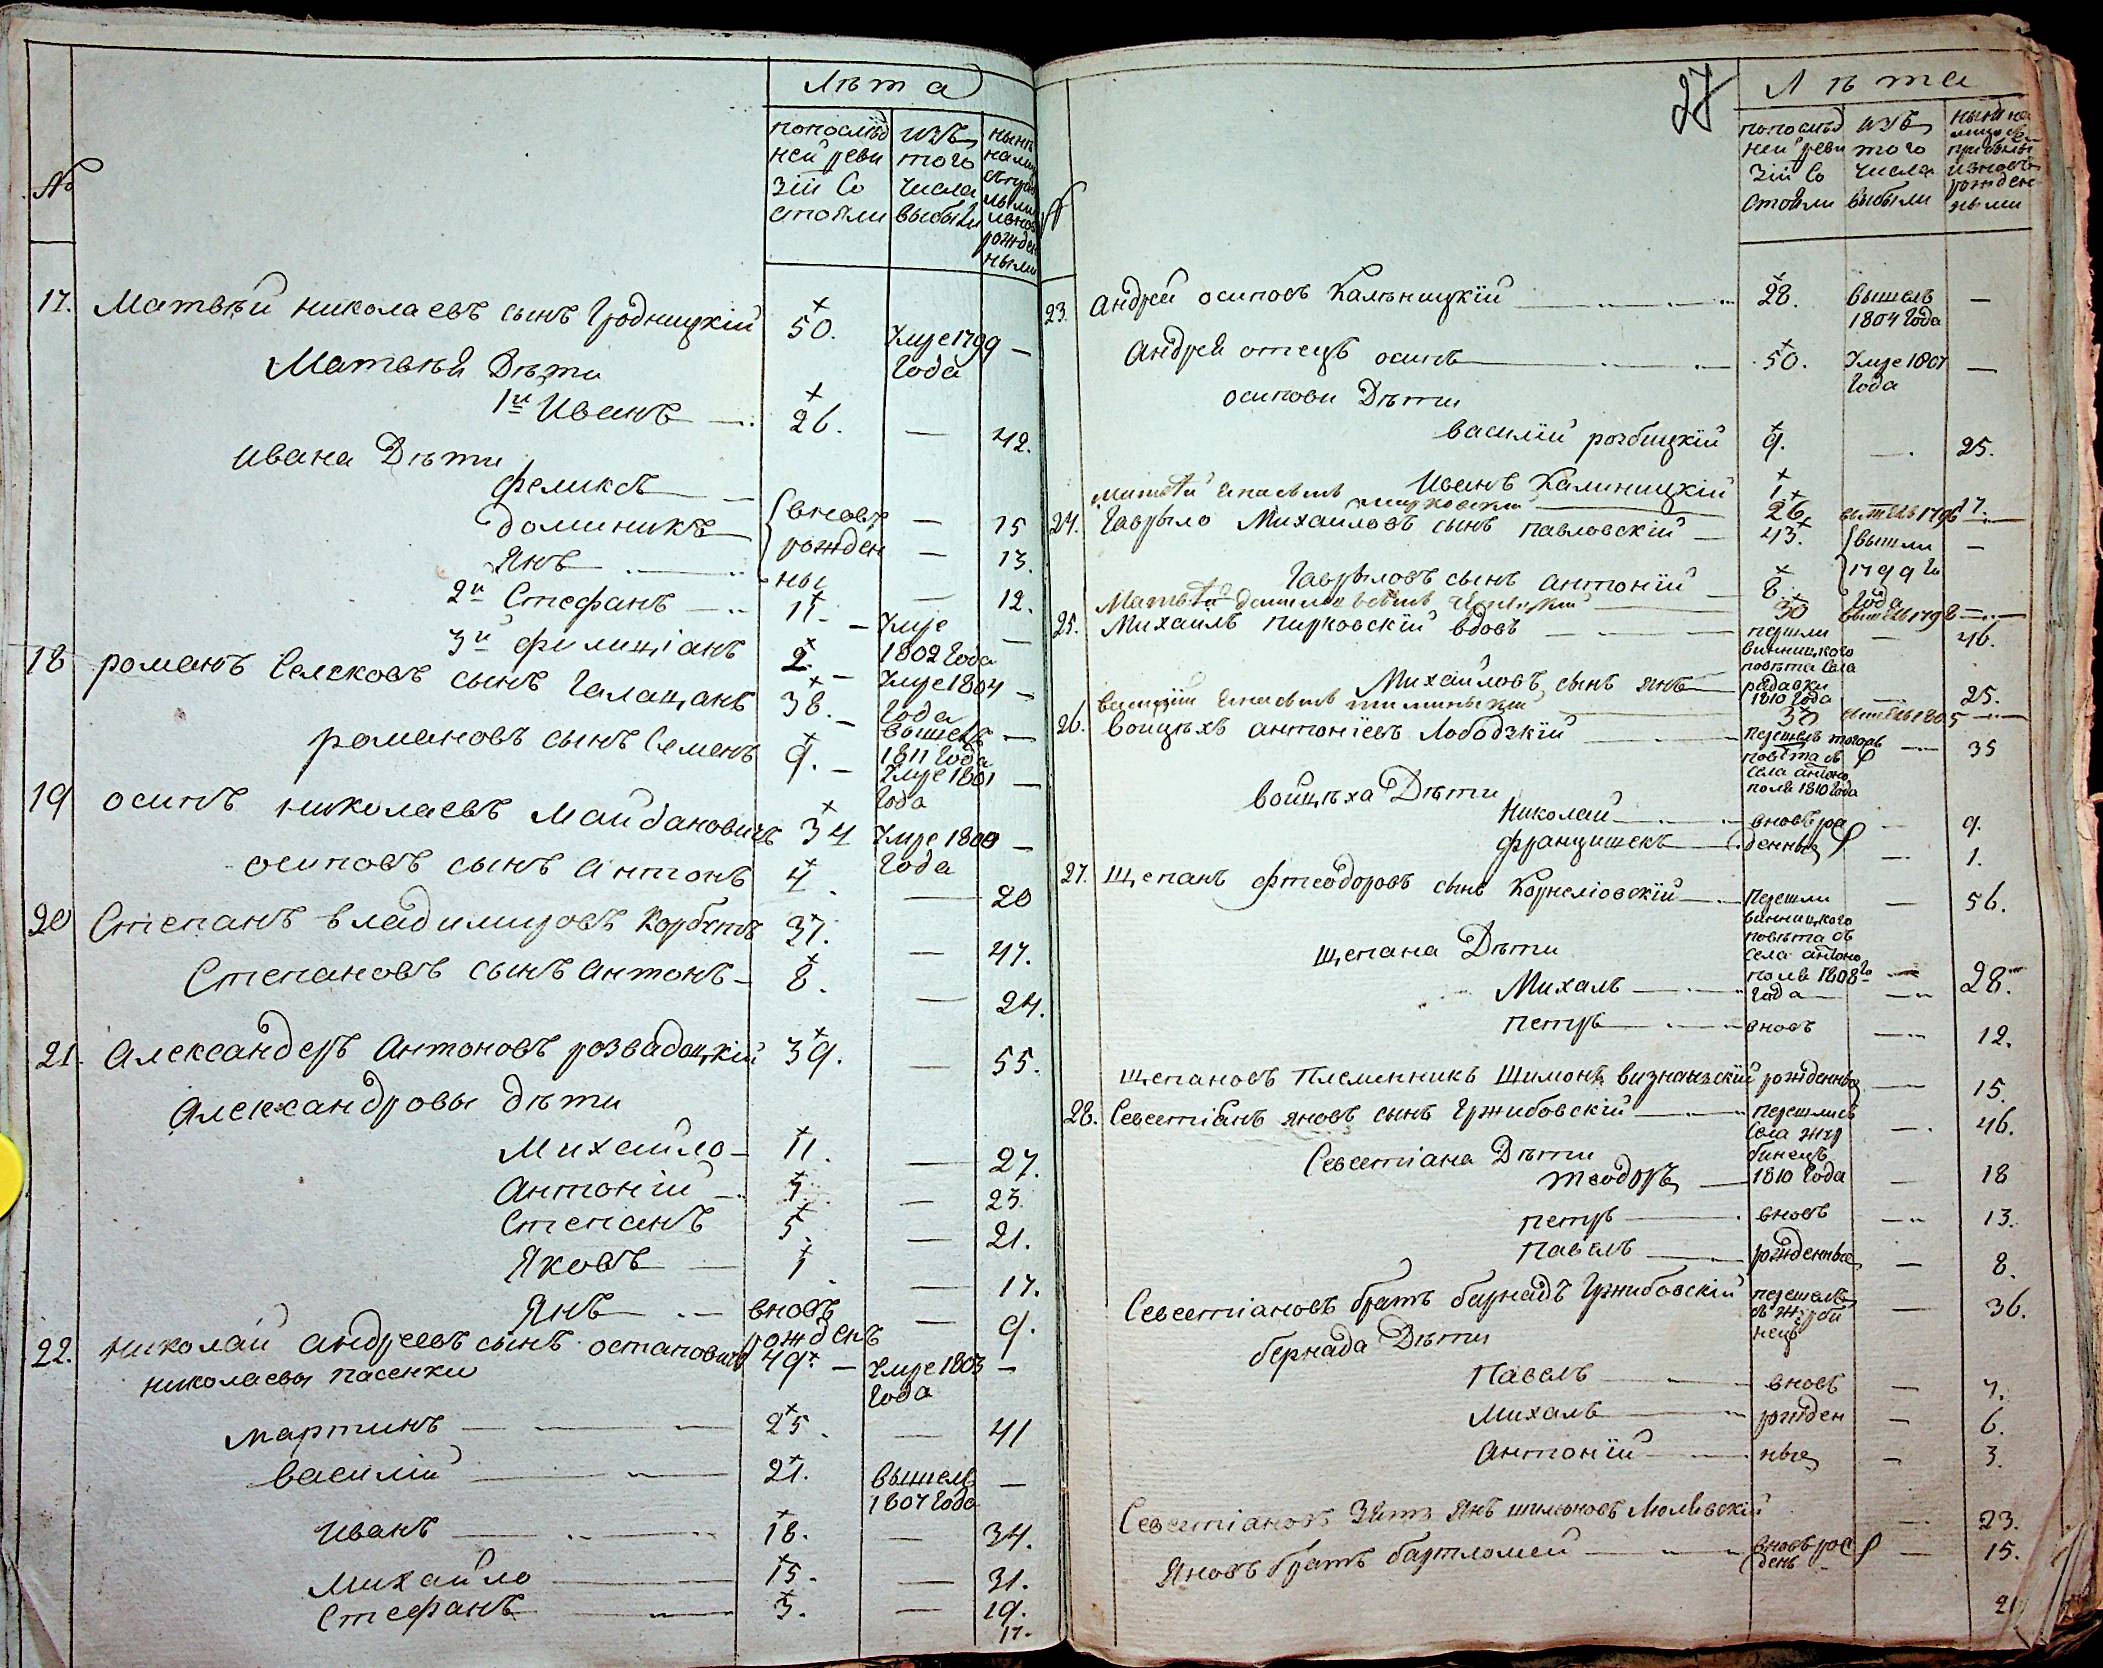 Лѣта
№
попослѣд
ней реви
зіи Со
стояли
изъ
того
числа
выбыли
нынѣ
рожден
ными
17. Матвѣй николаевъ сынъ Гродницкій 50. Умре 1799 —
Года
Матвѣя Дѣти
1й Иванъ — 26. — 42.
Ивана Дѣти
феликсъ — вновь — 15
доминикъ рожден — 13.
Янъ ны — 12.
2й Стефанъ — 11. — Умре
1802 Года —
3й фелиціанъ 2. — Умре 1804 —
Года
18 романъ Сельковъ сынъ Галацанъ 38. — вышелъ —
1811 Года
романовъ сынъ Семенъ 9. — Умре 1801 —
Года
19 осипъ николаевъ Майдановичъ 34 Умре 1800 —
Года
осиповъ сынъ Антонъ 4. — 20
20 Степанъ владимировъ Корбутъ 37. — 47.
Степановъ сынъ Антонъ — 8. — 24.
21. Александеръ Антоновъ розвадоцкій 39. — 55.
Александровы дѣти
Михайло — 11. — 27.
Антоній — 7. — 23.
Степанъ 5. — 21.
Яковъ — 1. — 17.
Янъ — вновь — 9.
рожденъ
22. николай Андреевъ сынъ остаповичъ 49. — Умре 1803 —
Года
николаевы пасенки
мартинъ — 25. — 41
василій — 21. вышелъ —
1807 Года
Иванъ — 18. — 34.
Михайло — 15. — 31.
Стефанъ — 3. — 19.
17.
27
Лѣта
попослѣд
ней реви
зіи Со
стояли
изъ
того
числа
выбыли
рожден
ными
23. Андрей осиповъ Калѣницкій — 28. вышелъ —
1804 Года
Андрея отецъ осипъ — 50. Умре 1801 —
Года
осипови Дѣти
василій рогбицкій 9. — 25.
Иванъ Калиницкій 1. 17.
26
24. Гаврыло Михайловъ сынъ павловскій — 43. вышли —
1799 Го
Года
Гаврыловъ сынъ антоній — 8.
30
25. Михаилъ пирковскій вдовъ — перешли — 46.
винницкого
повѣта села
радовки
1810 Года
Михайловъ сынъ янъ — 25.
26. войцѣхъ антоніевъ Лободзкій — перешелъ тогожъ — 35
повѣта съ
села антоно
поля 1810 Года
войцѣха Дѣти
николай — вновъ ро — 9.
францишекъ денные — 1.
27. Щепанъ фтеодоровъ сынъ Корнеліовскій — Перешли — 56.
винницкого
повѣта съ
села антоно
поля 1808го
года
щепана Дѣти
Михалъ — 28.
петръ — вновъ — 12.
щепановъ Племенникъ Шимонъ визнанскій рожденные — 15.
28. Севестіянъ яновъ сынъ Гржибовскій — перешли съ — 46.
села жер
бинецъ
1810 Года
Севестіяна Дѣти
теодоръ — 18
петръ — вновъ — 13.
Павелъ — рожденные — 8.
Севестіановъ братъ бернадъ Гржибовскій перешелъ — 36.
съ жерби
нецъ
бернада Дѣти
Павелъ — вновъ — 7.
Михалъ — рожден — 6.
Антоній — ные — 3.
Севестіановъ Зять Янъ шимоновъ — 23.
Яновъ братъ бартломей — вновъ рож — 15.
денъ